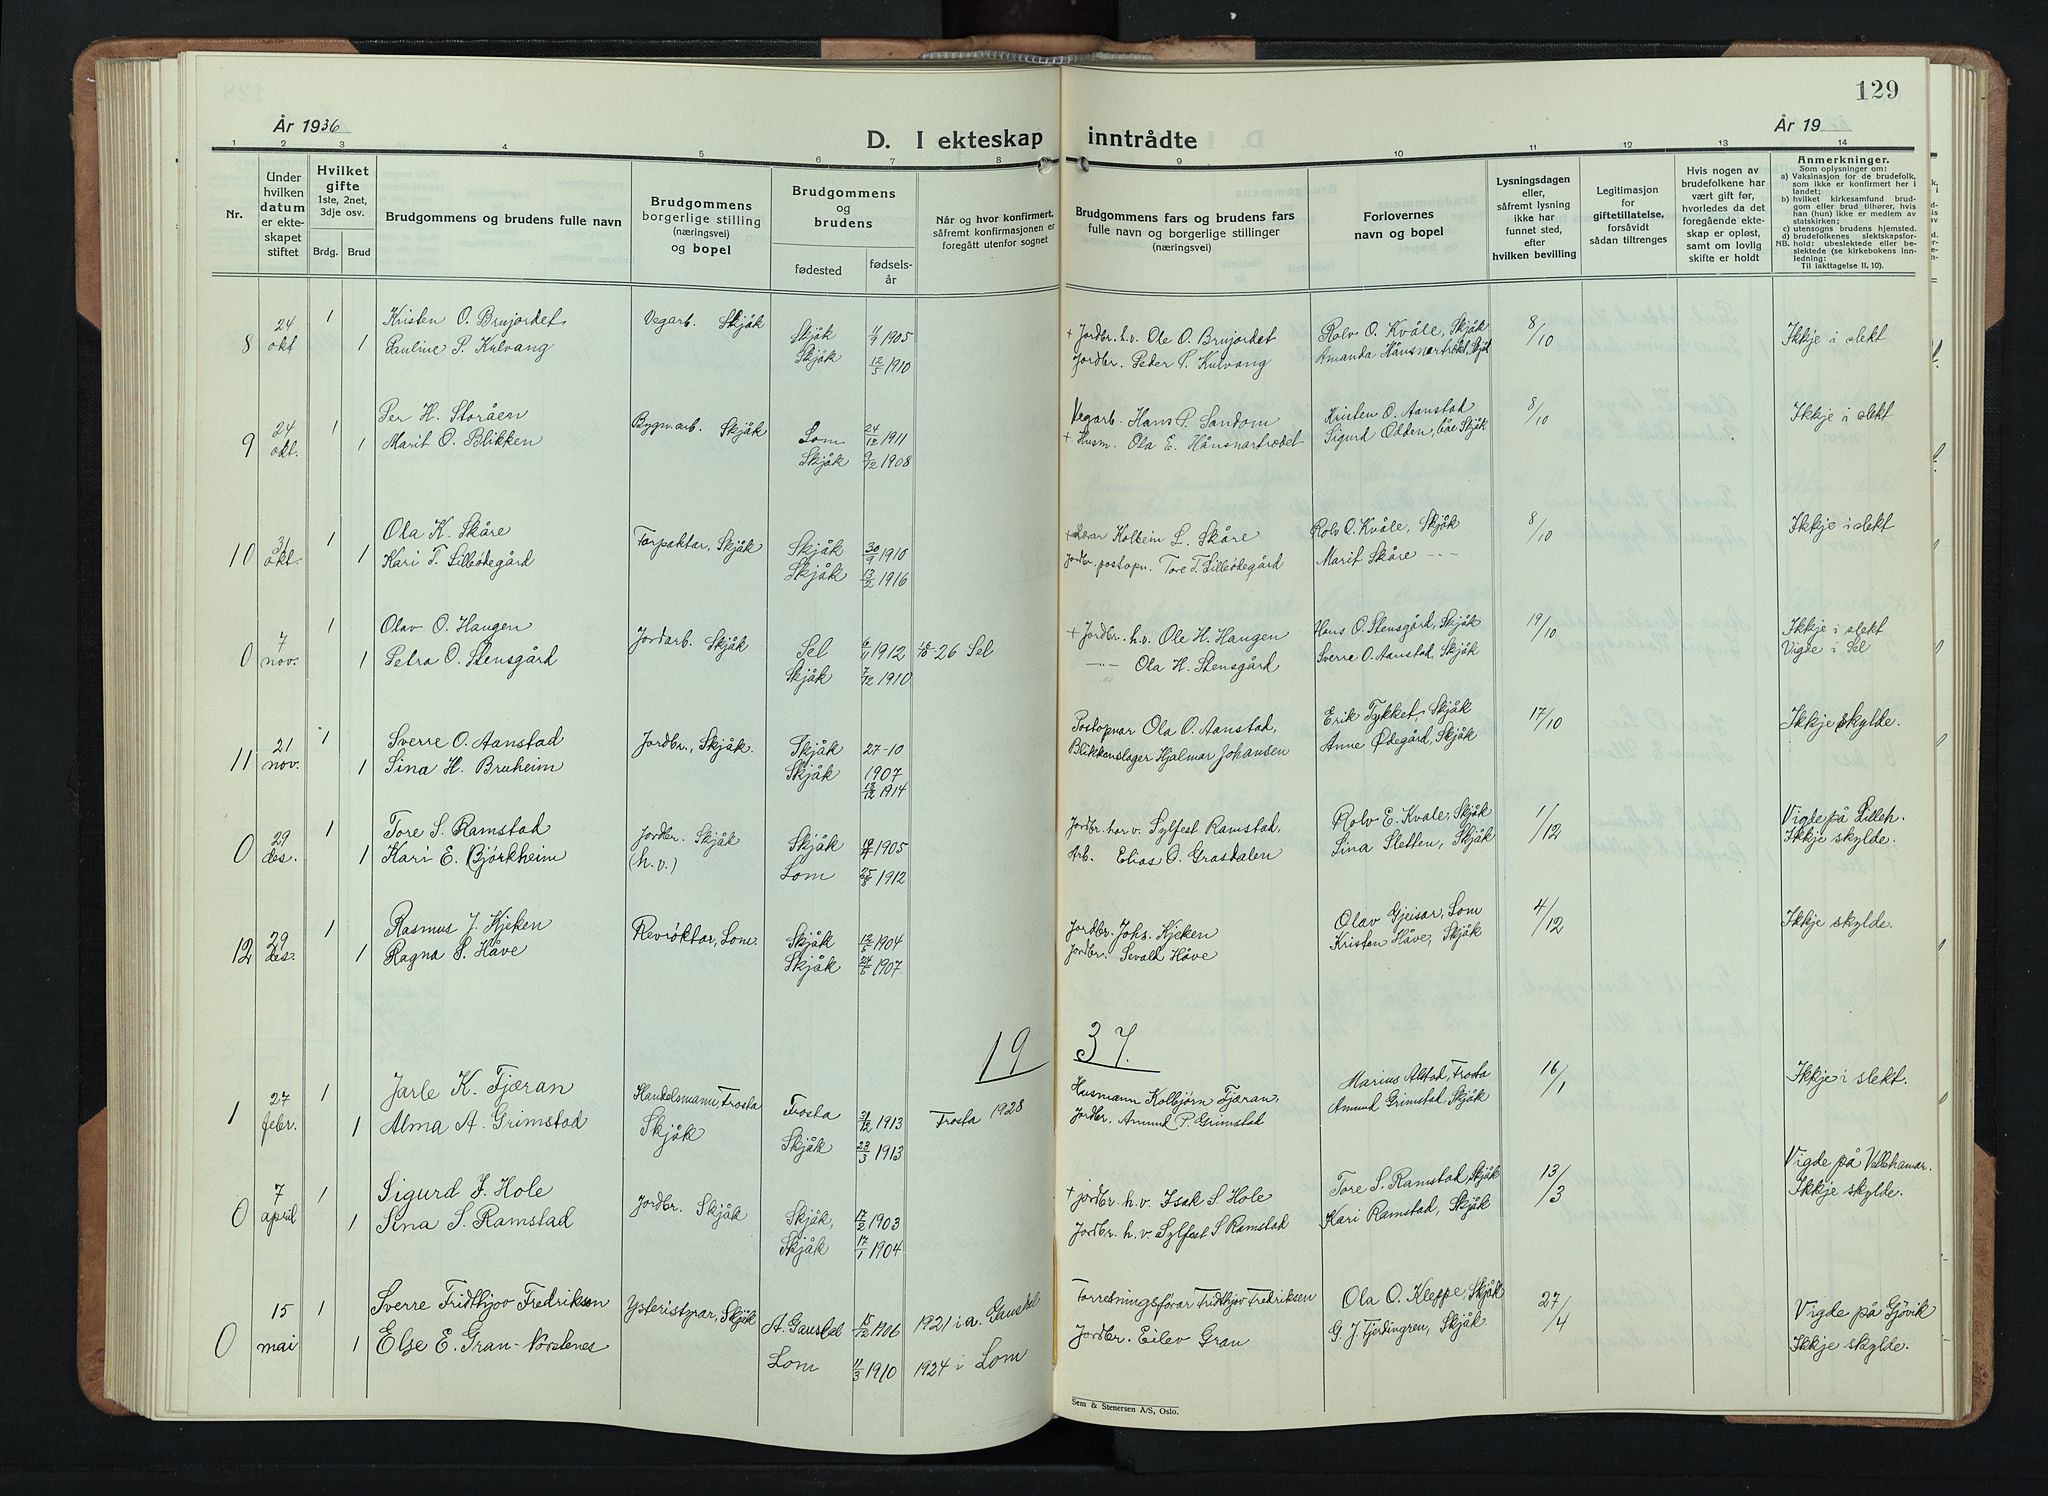 129
År 1936
År 19
D. I ekteskap inntrådte
1 2 3 4 5 6 7 8 9 10 11 12 13 14
Nr.
Under hvilken datum er ekteskapet stiftet
Hvilket gifte 1ste, 2net, 3dje osv.
Brdg. Brud
Brudgommens og brudens fulle navn
Brudgommens borgerlige stilling (næringsvei) og bopel
Brudgommens og brudens
fødested
fødselsår
Når og hvor konfirmert, såfremt konfirmasjonen er foregått utenfor sognet
Brudgommens fars og brudens fars fulle navn og borgerlige stillinger (næringsvei)
Forlovernes navn og bopel
Lysningsdagen eller, såfremt lysning ikke har funnet sted, efter hvilken bevilling
Legitimasjon for giftetillatelse, forsåvidt sådan tiltrenges
Hvis nogen av brudefolkene har vært gift før, hvorledes da det foregående ekteskap er opløst, samt om lovlig skifte er holdt
Anmerkninger.
Som oplysninger om:
a) Vaksinasjon for de brudefolk, som ikke er konfirmert her i landet;
b) hvilket kirkesamfund brudgom eller brud tilhører, hvis han (hun) ikke er medlem av statskirken;
c) utensogns brudens hjemsted.
d) brudefolkenes slektskapsforhold: ubeslektede eller beslektede (se kirkebokens innledning:
NB.
Til iakttagelse II. 10).
8 24 okt 1 Kristen O. Brujordet Vegarb. Skjåk Skjåk 1905 + Jordbr. h.v. Ole O. Brujordet Rolv O. Kvåle, Skjåk 8/10 Ikkje i slekt
1 Pauline P. Kulvang Skjåk 12/5 1910 Jordbr. Peder P. Kulvang Amanda Hånsnartrædet, Skjåk
9 24 okt. 1 Per H. Storåen Bygm.arb. Skjåk Lom 24/12 1911 Vegarb. Hans P. Sandom Kristen O. Aanstad 8/10 Ikkje i slekt
1 Marit O. Blikken Skjåk 9/12 1908 + Husm. Ola E. Hånsnartrædet Sigurd Odden, båe Skjåk
10 31 okt. 1 Ola K. Skåre Forpaktar, Skjåk Skjåk 30/9 1910 Kolbein L. Skåre Rolv O. Kvåle, Skjåk 8/10 Ikkje i slekt
1 Kari T. Lilleødegård Skjåk 13/2 1916 Jordbr. postopn. Tore T. Lilleødegård Marit Skåre -"-
0 7 nov. 1 Olav O. Haugen Jordarb. Skjåk Sel 1912 26 Sel + Jordbr. h.v. Ole H. Haugen Hans O. Stensgård, Skjåk 19/10 Ikkje i slekt
1 Petra O. Stensgård Skjåk 7/12 1910 -"- Ola H. Stensgård Sverre O. Aanstad, Skjåk Vigde i Sel
11 21 nov. 1 Sverre O. Aanstad Jordbr., Skjåk. Skjåk 27-10 1907 Postopnar Ola O. Aanstad, Erik Tykket, Skjåk 17/10 Ikkje skylde.
1 Sina H. Bruheim Skjåk 13/12 1914 Blikkenslager Hjalmar Johansen Anne Ødegård, Skjåk
0 29 des. 1 Tore S. Ramstad Jordbr. Skjåk (h.v.) Skjåk 1905 Jordbr. har v. Sylfest Ramstad, Rolv E. Kvale, Skjåk 1/12 Vigde på Lilleh.
1 Kari E. Bjørkheim Lom 25/8 1912 Arb. Elias O. Grasdalen Sina Sletten, Skjåk Ikkje skylde.
12 29 des. 1 Rasmus J. Kjeken Revrøktar, Lom. Skjåk 12/5 1904 Jordbr. Johs. Kjeken Olav Gjeisar, Lom 4/12 Ikkje skylde.
1 Ragna S. Håve Skjåk 24/5 1907. Jordbr. Sevald Håve Kristen Håve, Skjåk
19 37.
1 27 febr. 1 Jarle K. Fjæran Handelsmann, Frosta Frosta 31/12 1913 Frosta 1928 Husmann Kolbjørn Fjæran. Marius Alstad, Frosta 16/1 Ikkje i slekt.
1 Alma A. Grimstad Skjåk Skjåk 23/3 1913 Jordbr. Amund P. Grimstad Amund Grimstad, Skjåk
0 7 april 1 Sigurd J. Hole Jordbr. Skjåk Skjåk, 17/2 1903 + jordbr. h.v. Isak S. Hole Tore S. Ramstad, Skjåk 13/3 Vigde på Vallehamar.
1 Sina S. Ramstad Skjåk 17/1 1904 Jordbr. h.v. Sylfest S. Ramstad Kari Ramstad, Skjåk Ikkje skylde.
0 15 mai 1 Sverre Fridthjov Fredriksen Ysteristyrar, Skjåk A. Gausdal 15/12 1906 1921 i a. Gausdal Forretningsførar Fridthjov Fredriksen Ola O. Kleppe, Skjåk 27/4 Vigde på Gjøvik
1 Else E. Gran-Norstenes Lom 11/3 1910 1924 i Lom Jordbr. Eilev Gran G. J. Fjerdingren, Skjåk Ikkje skylde.
Sem & Stenersen A/S, Oslo.